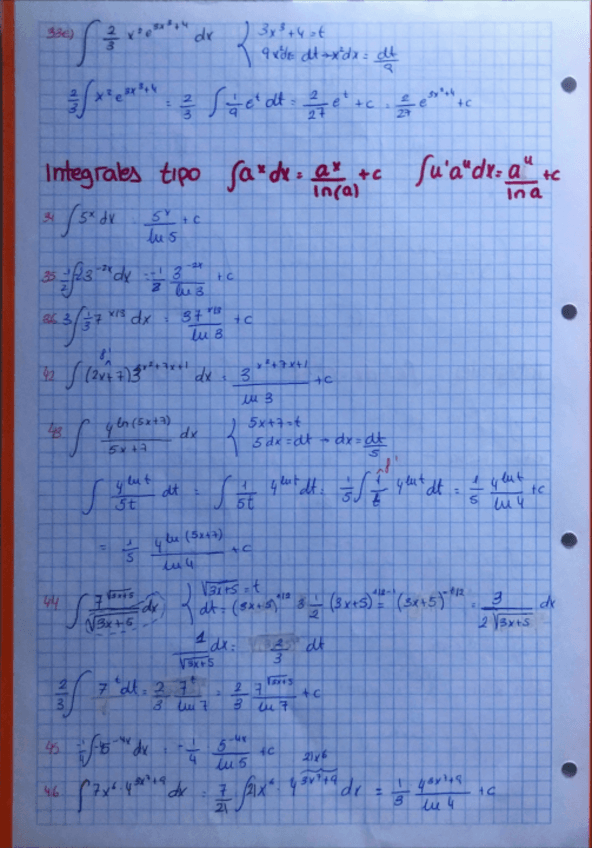 33c) ∫ 2/3 x² e^(3x³+4) dx { 3x³+4=t
9x²dx dt → x²dx = dt/9
2/3 ∫ x² e^(3x³+4) = 2/3 ∫ 1/9 e^t dt = 2/27 e^t + c = 2/27 e^(3x³+4) + c
Integrales tipo ∫a^x dx = a^x/ln(a) + c ∫u'a^u dx = a^u/ln a + c
34 ∫ 5^x dx = 5^x/ln 5 + c
35 -1/2 ∫-2 3^(-2x) dx = -1/2 3^(-2x)/ln 3 + c
36 3∫ 1/3 7^(x/3) dx = 37^(x/3)/ln 3 + c
f'
42 ∫ (2x+7)3^(x²+7x+1) dx = 3^(x²+7x+1)/ln 3 + c
43 ∫ 4^(ln(5x+7))/(5x+7) dx { 5x+7=t
5dx=dt → dx=dt/5
f'
∫ 4^(ln t)/5t dt = ∫ 1/5t 4^(ln t) dt = 1/5 ∫ 1/t 4^(ln t) dt = 1/5 4^(ln t)/ln 4 + c
= 1/5 4^(ln(5x+7))/ln 4 + c
44 ∫ 7^(√(3x+5))/√(3x+5) dx { √(3x+5) = t
dt = (3x+5)^(1/2) 3 1/2 (3x+5)^(1/2-1) = (3x+5)^(-1/2) = 3/(2√(3x+5)) dx
1/√(3x+5) dx = 2/3 dt
2/3 ∫ 7^t dt = 2/3 7^t/ln 7 = 2/3 7^(√(3x+5))/ln 7 + c
45 -1/4 ∫-4 5^(-4x) dx = -1/4 5^(-4x)/ln 5 + c
21x⁶
46 ∫ 7x⁶·4^(3x⁷+9) dx = 7/21 ∫21x⁶·4^(3x⁷+9) dx = 1/3 4^(3x⁷+9)/ln 4 + c